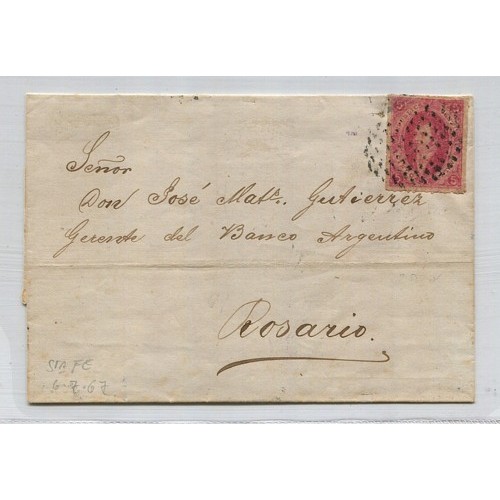 Señor
Don José Mat.ª Gutierrez
Gerente del Banco Argentino
Rosario.
Sta FE
5
5